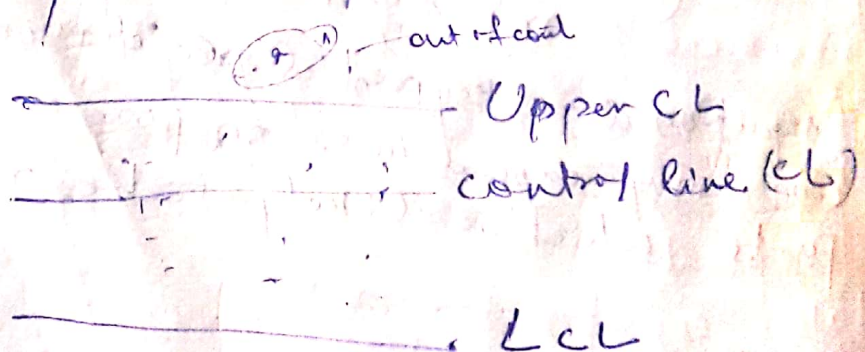 out of cont
- Upper CL
control line (CL)
LCL